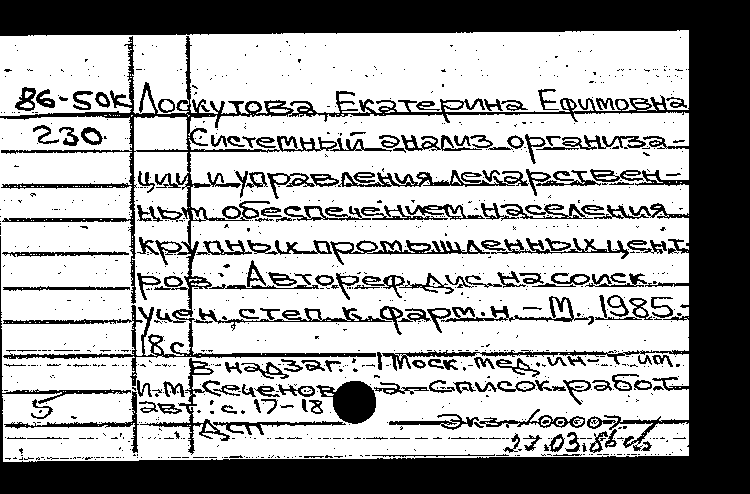 86-50к Лоскутова, Екатерина Ефимовна
230 Системный анализ организа-
ции и управления лекарствен-
ным обеспечением населения
крупных промышленных цент-
ров: Автореф. дис. на соиск.
учен. степ. к. фарм. н. - М., 1985.-
18 с.
В надзаг.: 1 Моск. мед. ин-т им.
И.М. Сеченова. Список работ
5. авт.: с. 17-18
ДСП Экз. 100007
27.03.86